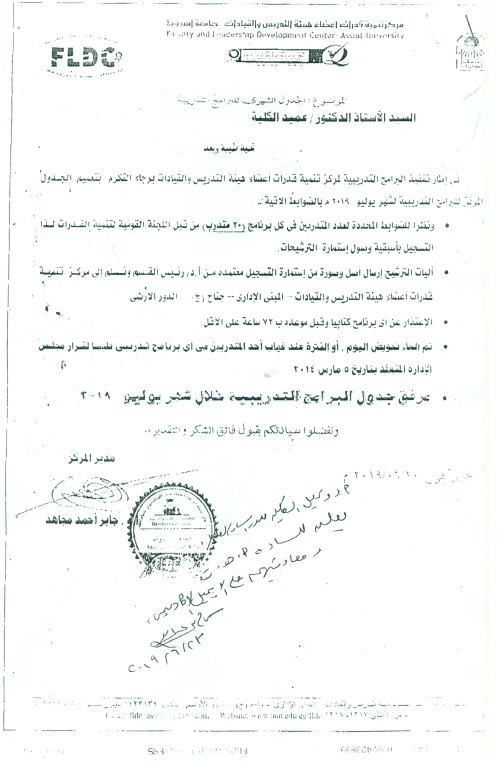 مركز تنمية قدرات أعضاء هيئة التدريس والقيادات جامعة أسيوط
Faculty and Leadership Development Center- Assiut University
FLDC
الموضوع: الجدول الشهرى للبرامج التدريبية
السيد الأستاذ الدكتور/ عميد الكلية
تحية طيبة وبعد
فى إطار تنفيذ البرامج التدريبية لمركز تنمية قدرات أعضاء هيئة التدريس والقيادات برجاء التكرم بتعميم الجدول
المرفق للبرامج التدريبية لشهر يوليو ٢٠١٩ م بالضوابط الاتية:
• ونظرا للضوابط المحددة لعدد المتدربين فى كل برنامج (٢٠ متدرب) من قبل اللجنة القومية لتنمية القدرات لذا
التسجيل بأسبقية وصول إستمارة الترشيحات.
• آليات الترشيح إرسال اصل وصورة من إستمارة التسجيل معتمده من أ.د/ رئيس القسم وتسلم إلى مركز تنمية
قدرات أعضاء هيئة التدريس والقيادات – المبنى الإدارى – جناح (ج) الدور الأرضى
• الإعتذار عن اى برنامج كتابيا وقبل موعده ب ٧٢ ساعة على الأقل.
• تم الغاء تعويض اليوم . أو الفترة عند غياب أحد المتدربين فى اى برنامج تدريبى طبقا لقرار مجلس
الإدارة المنعقد بتاريخ ٥ مارس ٢٠١٤
• مرفق جدول البرامج التدريبية خلال شهر يوليو ٢٠١٩
وتفضلوا سيادتكم بقبول فائق الشكر والتقدير،،
مدير المركز
٢٠١٩/٠٦/٢٠
جابر أحمد مجاهد
٢٠١٩/٦/٢٣
Website: www.aun.edu.eg/fldc